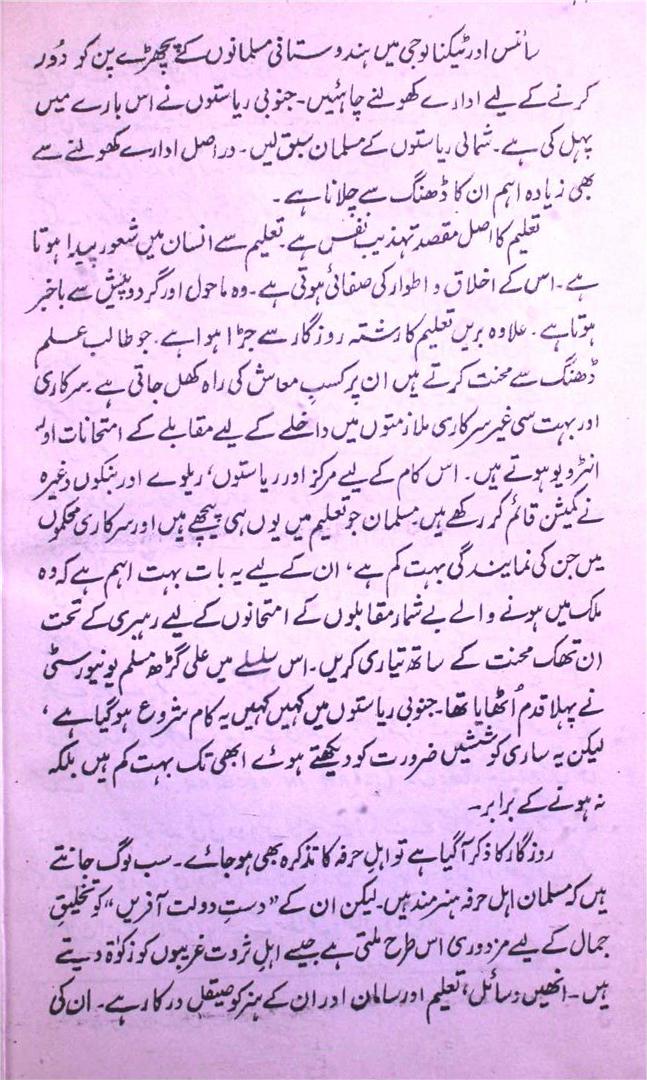 سائنس اور ٹیکنالوجی میں ہندوستانی مسلمانوں کے پچھڑے پن کو دُور
کرنے کے لیے ادارے کھولنے چاہئیں۔ جنوبی ریاستوں نے اس بارے میں
پہل کی ہے۔ شمالی ریاستوں کے مسلمان سبق لیں۔ دراصل ادارے کھولنے سے
بھی زیادہ اہم ان کا ڈھنگ سے چلانا ہے۔
تعلیم کا اصل مقصد تہذیبِ نفس ہے۔ تعلیم سے انسان میں شعور پیدا ہوتا
ہے۔ اس کے اخلاق و اطوار کی صفائی ہوتی ہے۔ وہ ماحول اور گردوپیش سے باخبر
ہوتا ہے۔ علاوہ بریں تعلیم کا رشتہ روزگار سے جڑا ہوا ہے۔ جو طالب علم
ڈھنگ سے محنت کرتے ہیں ان پر کسبِ معاش کی راہ کھل جاتی ہے۔ سرکاری
اور بہت سی غیر سرکاری ملازمتوں میں داخلے کے لیے مقابلے کے امتحانات اور
انٹرویو ہوتے ہیں۔ اس کام کے لیے مرکز اور ریاستوں، ریلوے اور بنکوں وغیرہ
نے کمیشن قائم کر رکھے ہیں۔ مسلمان جو تعلیم میں یوں ہی پیچھے ہیں اور سرکاری محکموں
میں جن کی نمایندگی بہت کم ہے، ان کے لیے یہ بات بہت اہم ہے کہ وہ
ملک میں ہونے والے بے شمار مقابلوں کے امتحانوں کے لیے رہبری کے تحت
ان تھک محنت کے ساتھ تیاری کریں۔ اس سلسلے میں علی گڑھ مسلم یونیورسٹی
نے پہلا قدم اُٹھایا تھا۔ جنوبی ریاستوں میں کہیں کہیں یہ کام شروع ہو گیا ہے،
لیکن یہ ساری کوششیں ضرورت کو دیکھتے ہوئے ابھی تک بہت کم ہیں بلکہ
نہ ہونے کے برابر۔
روزگار کا ذکر آگیا ہے تو اہلِ حرفہ کا تذکرہ بھی ہو جائے۔ سب لوگ جانتے
ہیں کہ مسلمان اہل حرفہ ہنرمند ہیں۔ لیکن ان کے "دستِ دولت آفریں" کو تخلیقِ
جمال کے لیے مزدوری اس طرح ملتی ہے جیسے اہلِ ثروت غریبوں کو زکوٰۃ دیتے
ہیں۔ انھیں وسائل، تعلیم اور سامان اور ان کے ہنر کو صیقل درکار ہے۔ ان کی